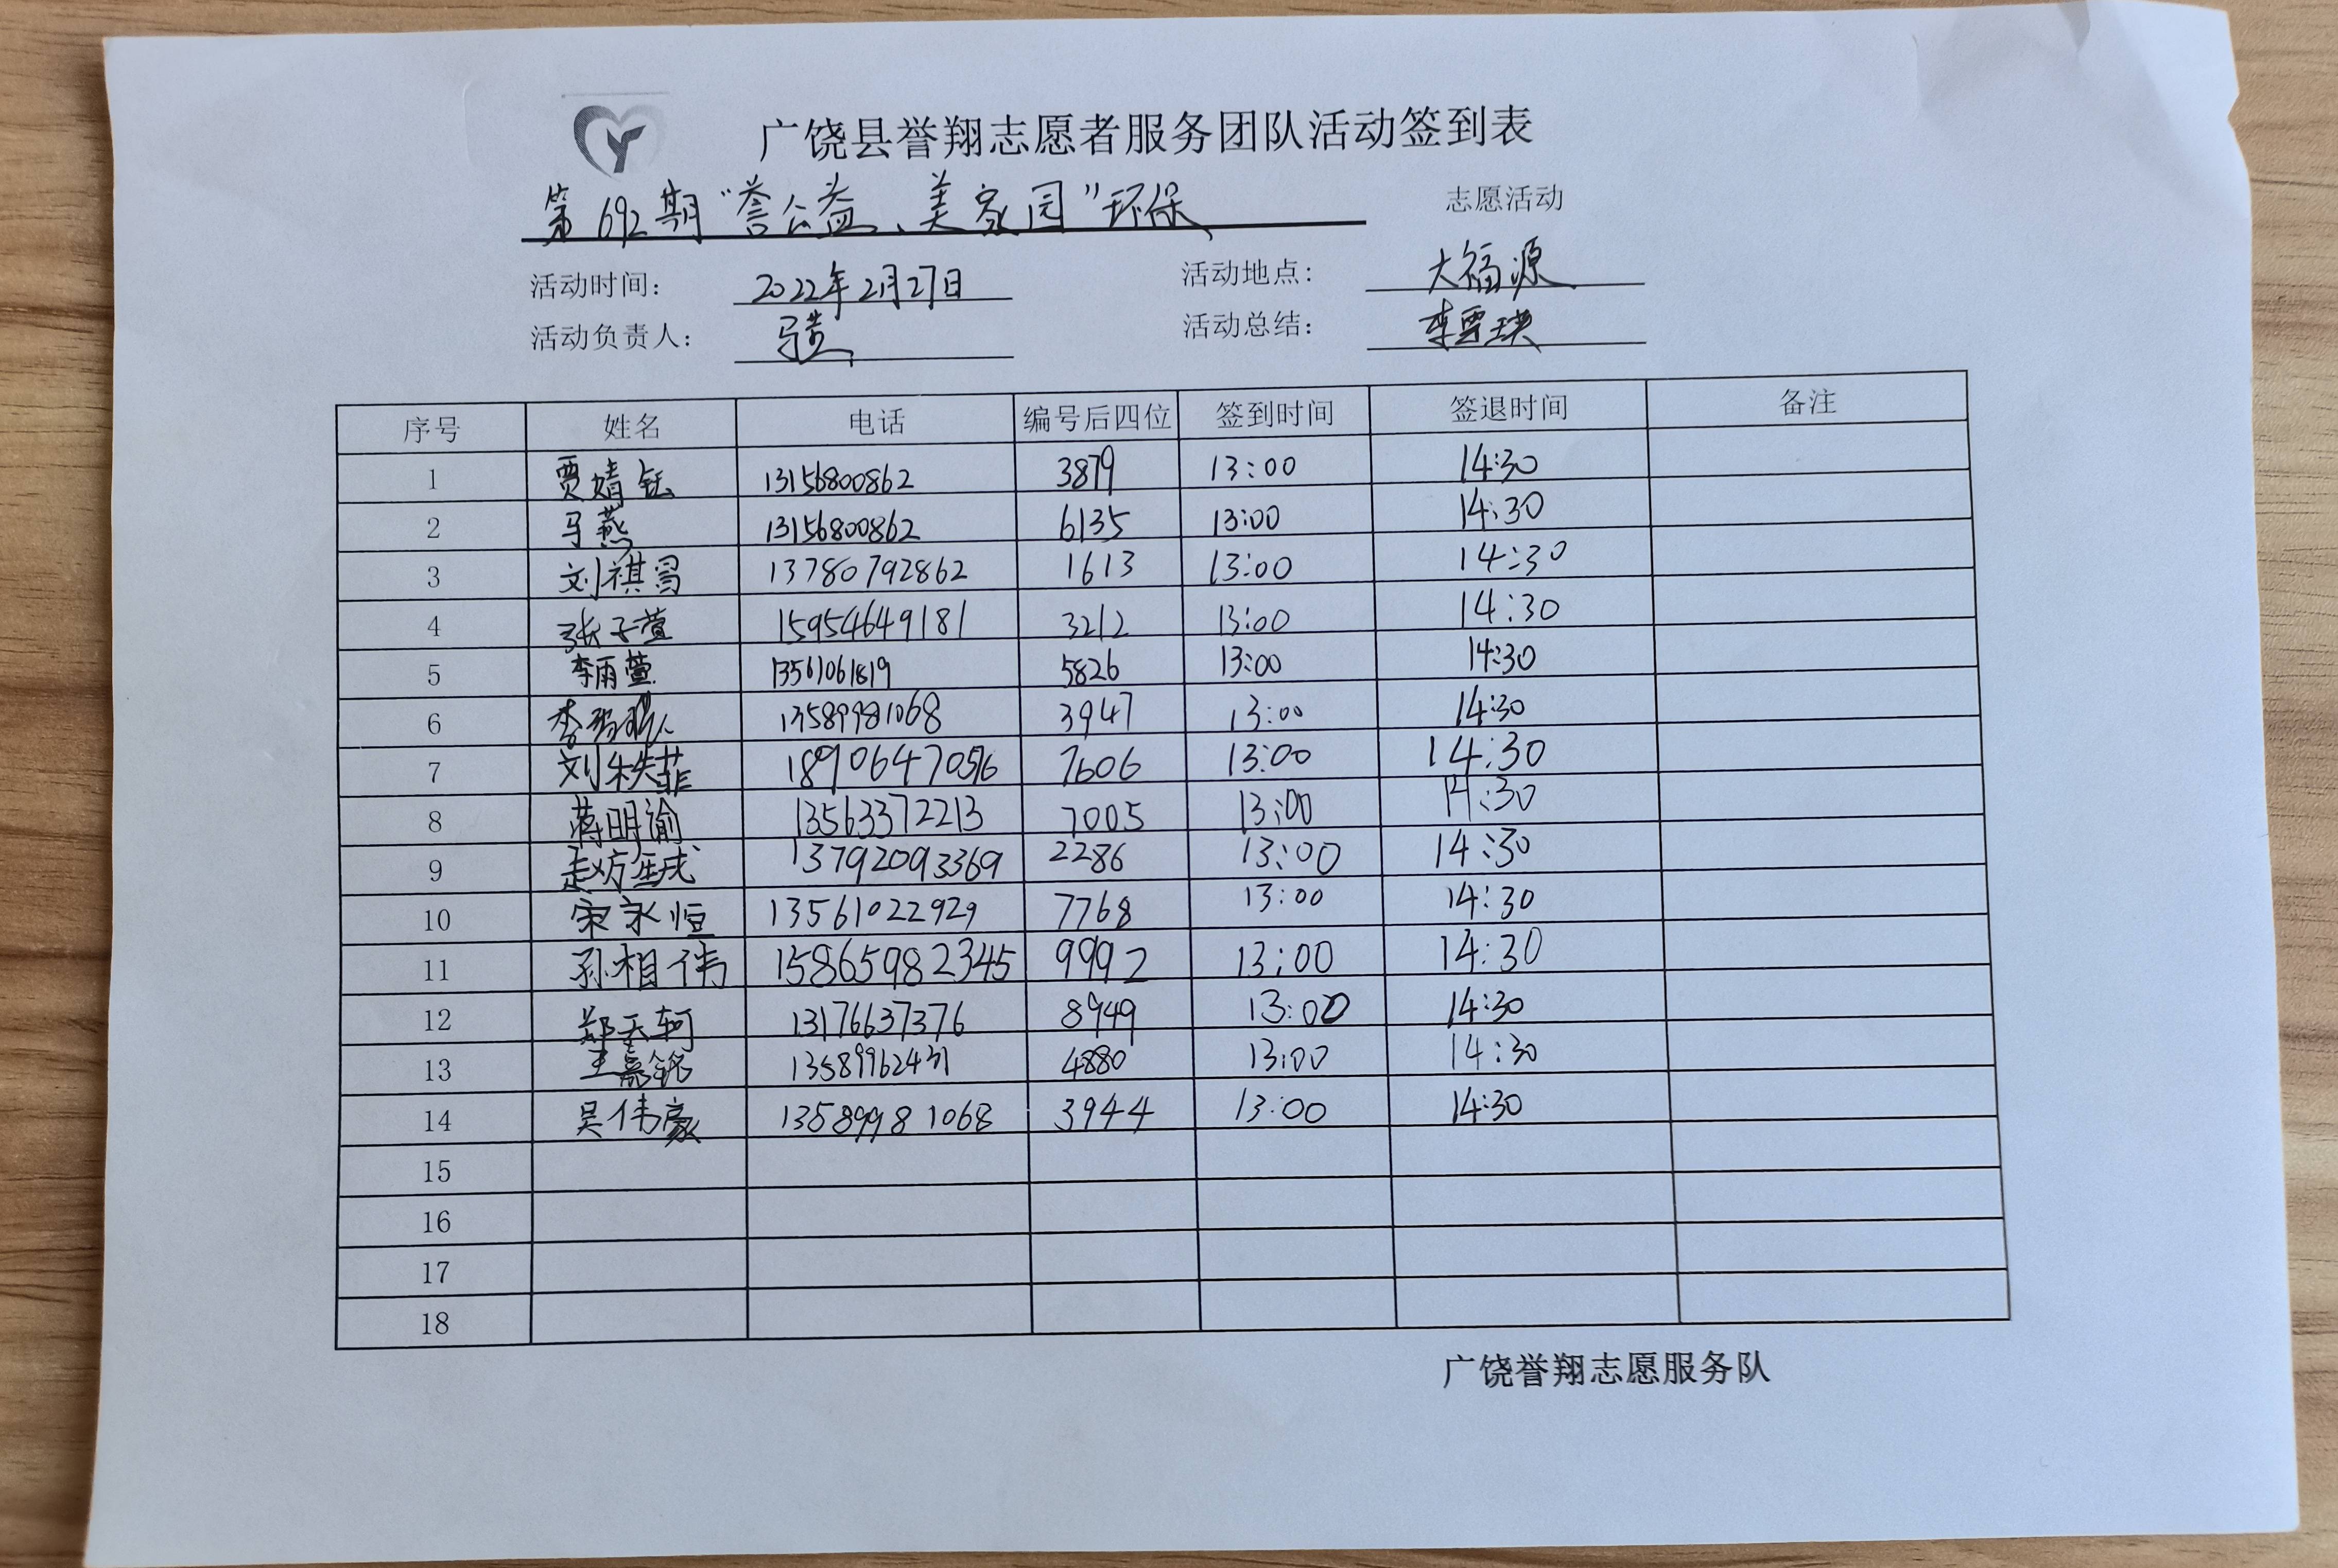 广饶县誉翔志愿者服务团队活动签到表
第692期“誉公益、美家园”环保 志愿活动
活动时间: 2022年2月27日 活动地点: 大福源
活动负责人: 活动总结:
序号 姓名 电话 编号后四位 签到时间 签退时间 备注
1 贾婧钰 13156800862 3879 13:00 14:30
2 马燕 13156800862 6135 13:00 14:30
3 刘祺昌 13780792862 1613 13:00 14:30
4 张子萱 15954649181 3212 13:00 14:30
5 李雨萱 13561061819 5826 13:00 14:30
6 13589981068 3947 13:00 14:30
7 7606 13:00 14:30
8 蒋明渝 13563372213 7005 13:00 14:30
9 13792093369 2286 13:00 14:30
10 宋永恒 13561022929 7768 13:00 14:30
11 孙相伟 15865982345 9992 13:00 14:30
12 郑天轲 13176637376 8949 13:00 14:30
13 王嘉铭 4880 13:00 14:30
14 吴伟豪 13589981068 3944 13:00 14:30
15
16
17
18
广饶誉翔志愿服务队